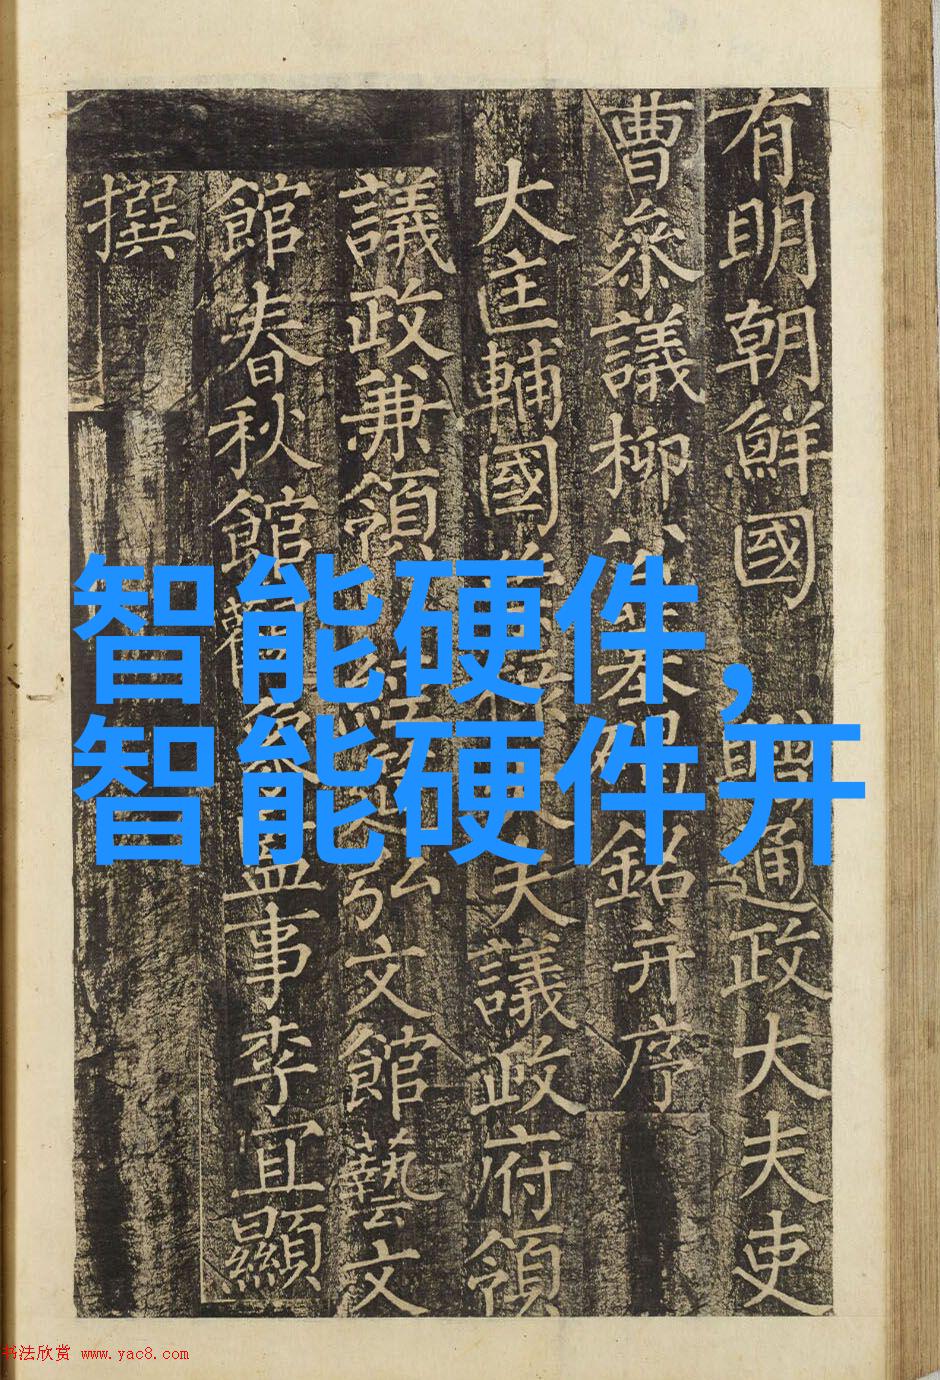 有明朝鮮國 贈通政大夫吏
曹叅議柳公墓碣銘并序
大匡輔國大夫議政府領
議政兼領弘文館藝文
館春秋館觀象監事李宜顯
撰
智能硬件,
智能硬件开
书法欣赏 www.yac8.com